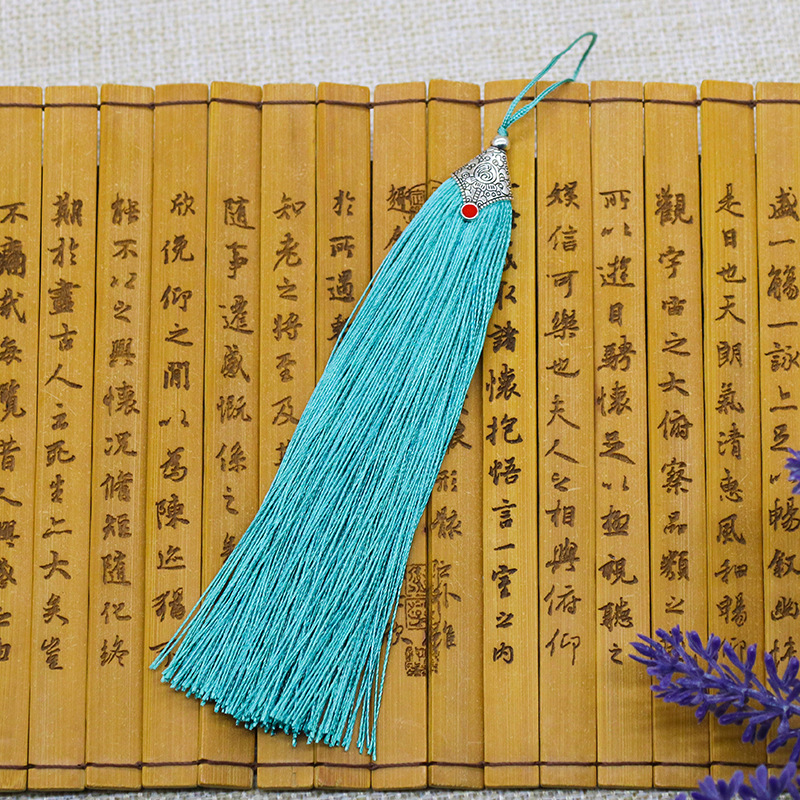 盛一觴一詠上足以暢敘幽情
是日也天朗氣清惠風和暢仰
觀宇宙之大俯察品類之
所以遊目騁懷足以極視聽之
娛信可樂也夫人之相與俯仰
取諸懷抱悟言一室之內
趣
形骸
於所遇
知老之將至及
隨事遷感慨係之
欣俛仰之間以為陳迹猶
能不以之興懷況脩短隨化終
期於盡古人云死生亦大矣豈
不痛哉每覽昔人興感